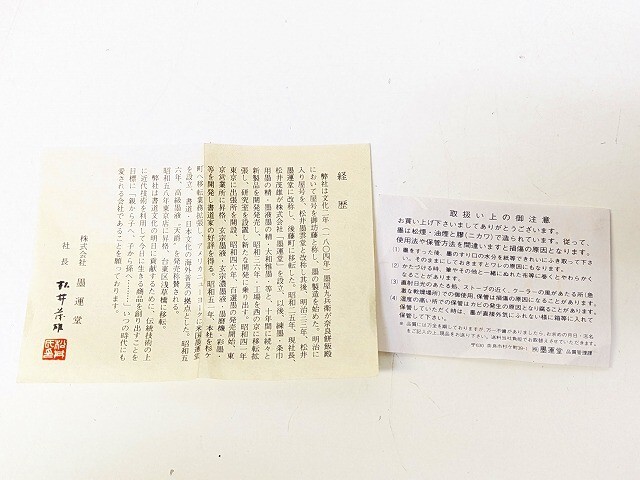 経歴
弊社は文化二年(一八〇四年)墨屋九兵衛が奈良餅飯殿
において屋号を御坊藤と称し、墨の製造を始めた。明治に
入り屋号を、松井墨雲堂と改称し其後、明治三三年、松井
墨運堂に改称し、後藤町に移転した。昭和二五年、現社長、
松井茂雄が株式会社「墨運堂」を設立。以後、練墨・条巾
用墨の精・墨液墨の精・大和雅墨・等と、十年間に続々と
新製品を開発発売し、昭和三六年・工場を西の京に移転拡
張し、研究室を設置し新たな開発に乗り出す。昭和四一年
東京に出張所を開設、昭和四六年、百選墨の発売開始、東
京営業所に昇格、玄宗墨液・玄宗濃墨液・墨磨機・彩墨・
等を開発し書道家の好評を得る。昭和五一年、本社を杉ケ
町へ移転業務拡張し
を設立、書道・日本文化の海外普及の拠点とした。昭和五
六年、高級墨液「天爵」を発売称賛される。
昭和五八年東京店に昇格、台東区浅草橋に移転。
弊社は書道文化の明日に貢献するために、伝統技術の上
に近代技術を利用して永久に生きる商品を創り出すことを
目標に「親から子へ、子から孫へ」と、いつの時代にも
愛される会社であることを願っております。
株式会社 墨運堂
社長 松井茂雄
取扱い上の御注意
お買い上げ下さいましてありがとうございます。
墨は松煙・油煙と膠(ニカワ)で造られています。従って、
使用法や保管方法を間違いますと損傷の原因となります。
(1) 墨をすった後、墨のすり口の水分を紙等できれいにふき取って下さ
い。そのままにしておきますとワレの原因にもなります。
(2) かたづける時、筆やその他と一緒にぬれた布等に巻くとやわらかく
なることがあります。
(3) 直射日光のあたる処、ストーブの近く、クーラーの風があたる所(急
激な乾燥場所)での御使用、保管は損傷の原因になることがあります。
(4) 湿度の高い所での保管はカビの発生の原因となることがあります。
保管して下さい。墨が直接外気にふれない様に箱等に入れて
保管して下さい。
〒630 奈良市杉ケ町39-1 ㈱墨運堂 品質管理課